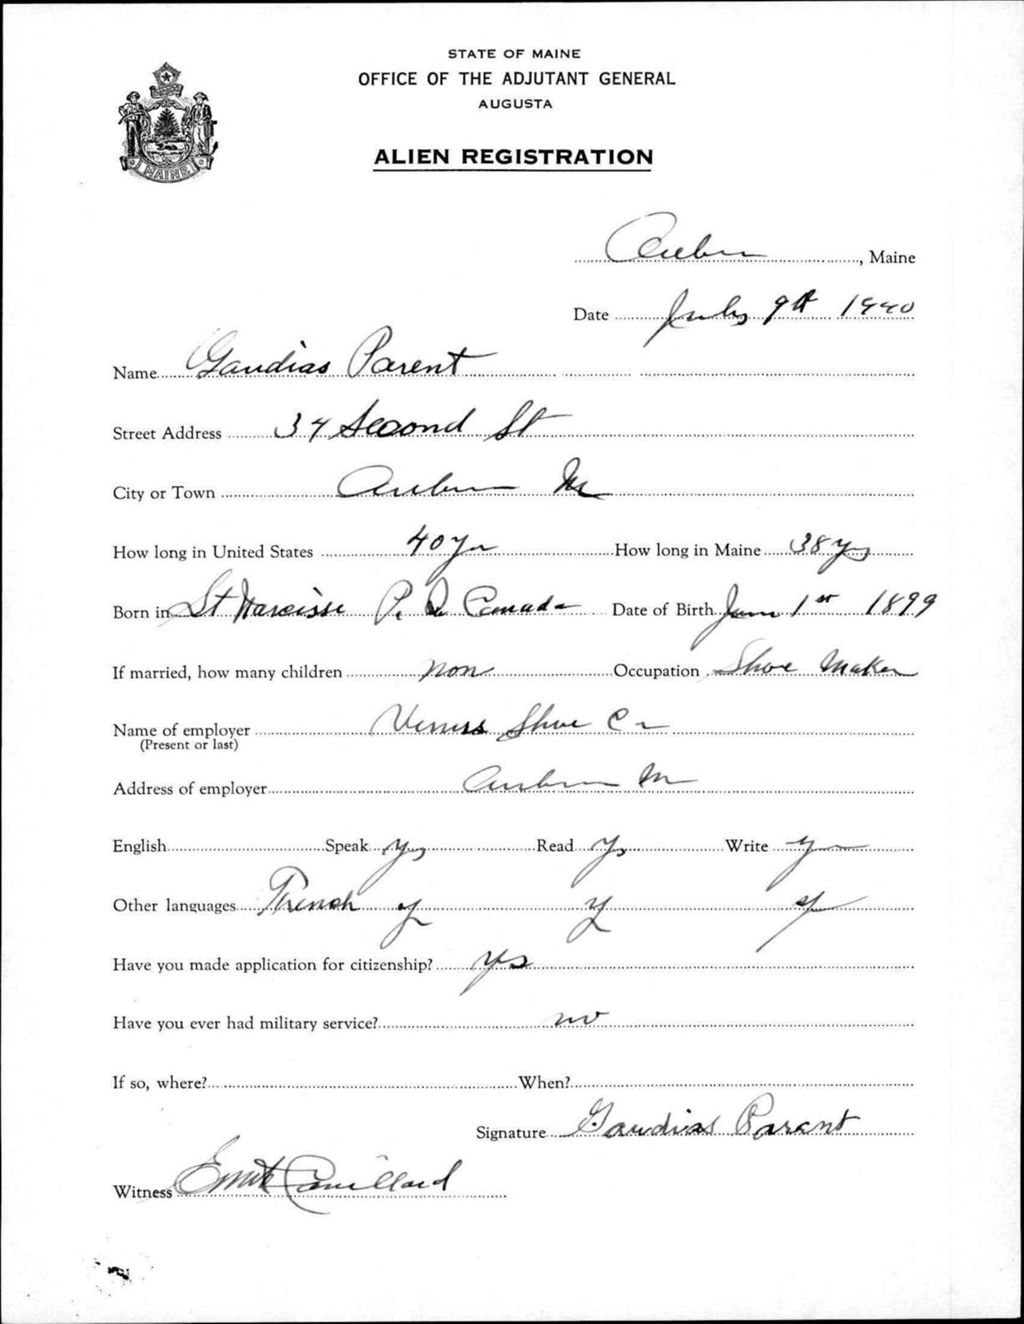 STATE OF MAINE
OFFICE OF THE ADJUTANT GENERAL
AUGUSTA
ALIEN REGISTRATION
MAINE
Auburn, Maine
Date July 9th 1940
Name Gaudias Parent
Street Address 34 Second St
City or Town Auburn Me
How long in United States 40 yr How long in Maine 38 yrs
Born in St Narcisse P. Q. Canada Date of Birth 1st 1899
If married, how many children non Occupation Shoe Maker
Name of employer Venus Shoe Co
(Present or last)
Address of employer Auburn M
English Speak Yes Read Yes Write Yes
Other languages French y y y
Have you made application for citizenship? yes
Have you ever had military service? no
If so, where? When?
Signature Gaudias Parent
Witness